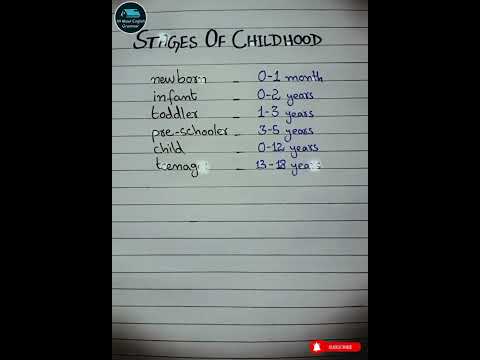 All About English
Grammar
STAGES OF CHILDHOOD
newborn - 0-1 month
infant - 0-2 years
toddler - 1-3 years
pre-schooler - 3-5 years
child - 0-12 years
teenag - 13-18 years
SUBSCRIBE